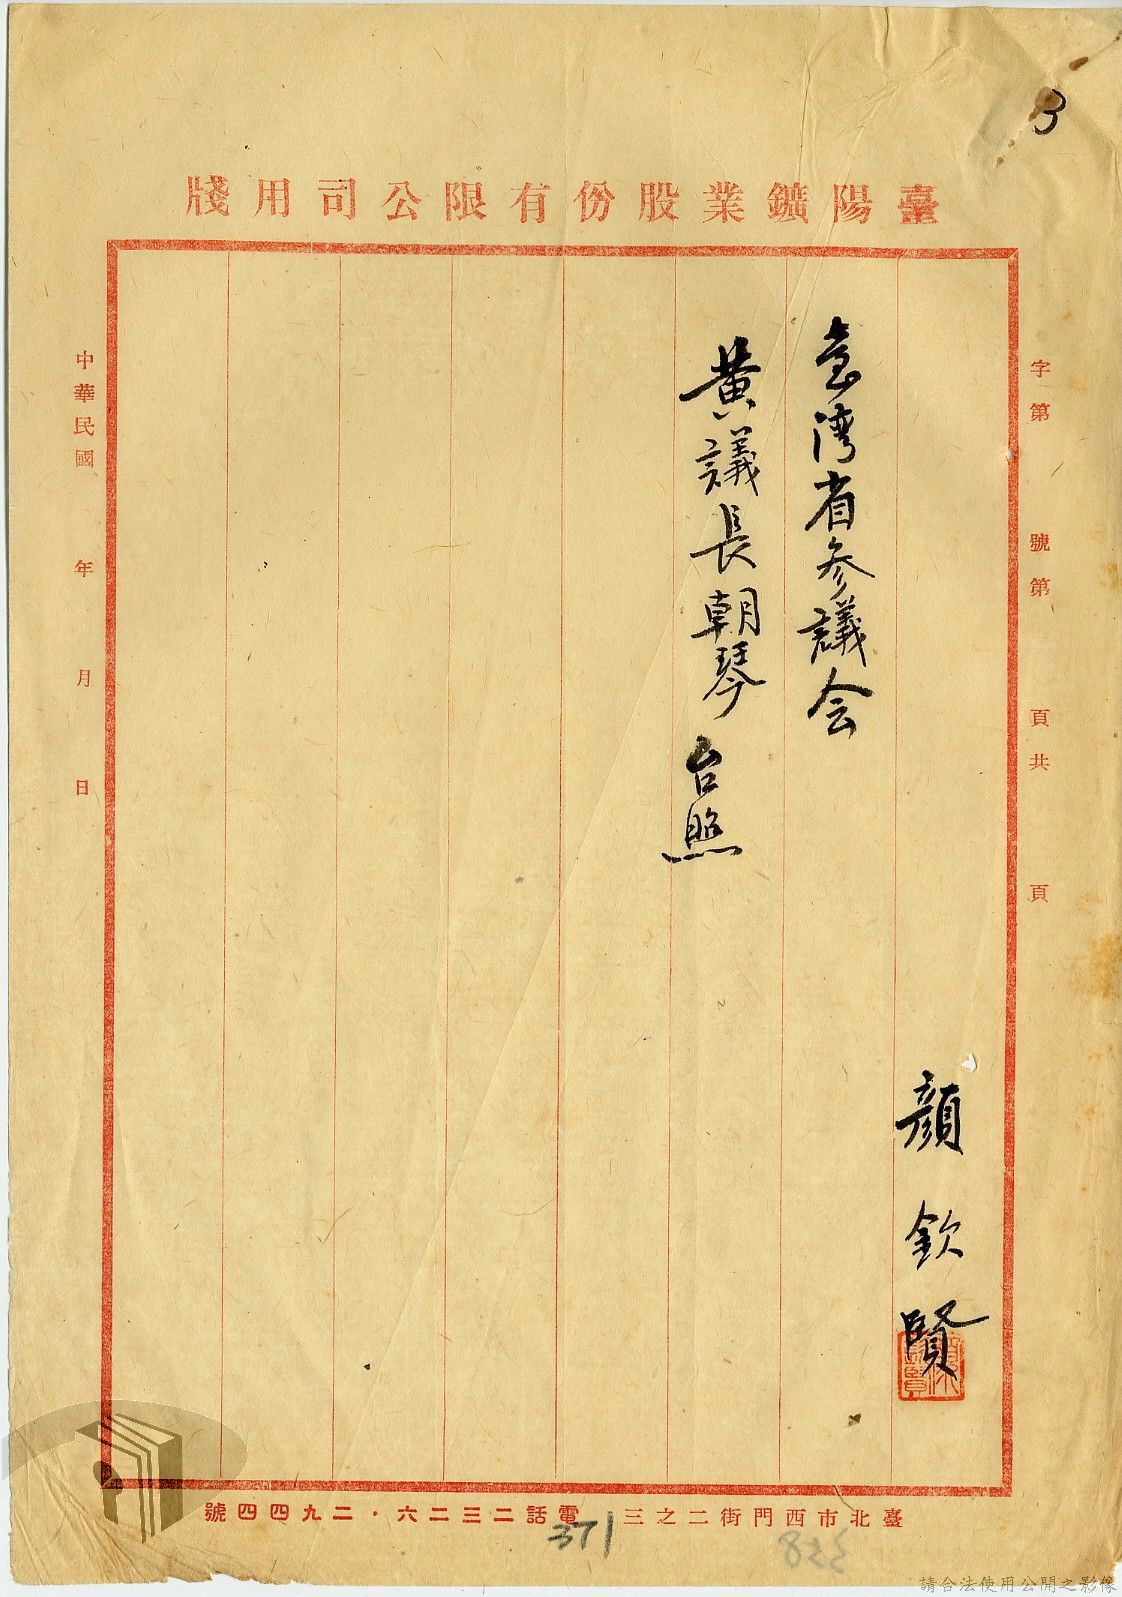 3
臺陽鑛業股份有限公司用牋
字第　號第　頁共　頁
顏欽賢
臺湾省参議会
黄議長朝琴 台照
中華民國　年　月　日
臺北市西門街二之三 電話二三二六・二九四四號
371
請合法使用公開之影像